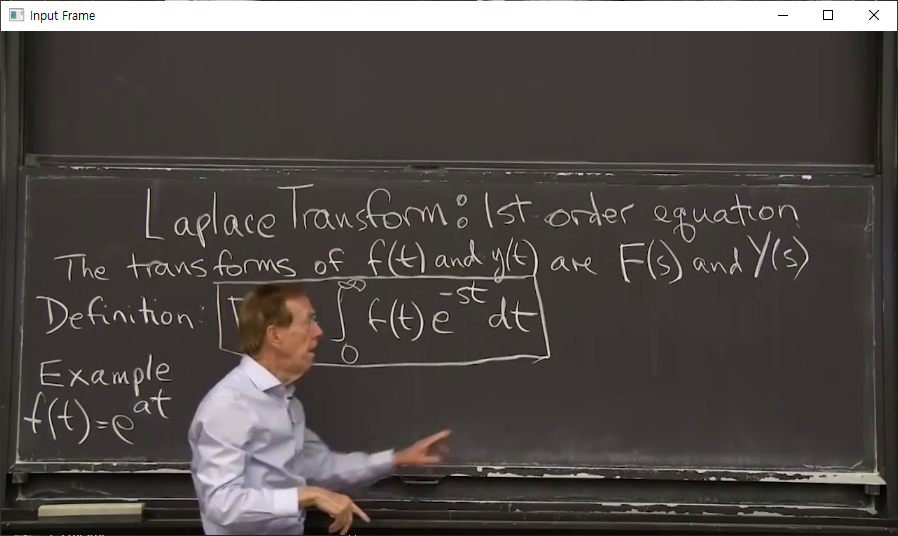 Input Frame
Laplace Transform: 1st order equation
The transforms of f(t) and y(t) are F(s) and Y(s)
Definition: ∫₀^∞ f(t) e^{-st} dt
Example
f(t)=e^{at}